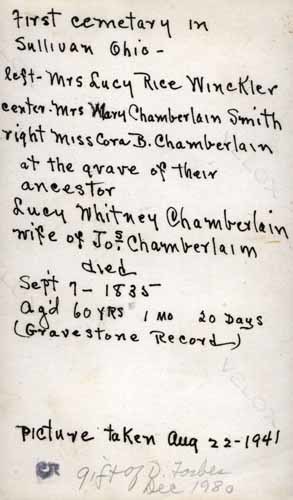 First cemetary in
Sullivan Ohio -
left - Mrs Lucy Rice Winckler
center - Mrs Mary Chamberlain Smith
right Miss Cora B. Chamberlain
at the grave of their
ancestor
Lucy Whitney Chamberlain
wife of Jos. Chamberlaim
died
Sept 7 - 1835
Ag'd 60 YRS 1 Mo 20 Days
(Gravestone Record)
Picture taken Aug 22-1941
gift of D. Forbes
Dec 1980